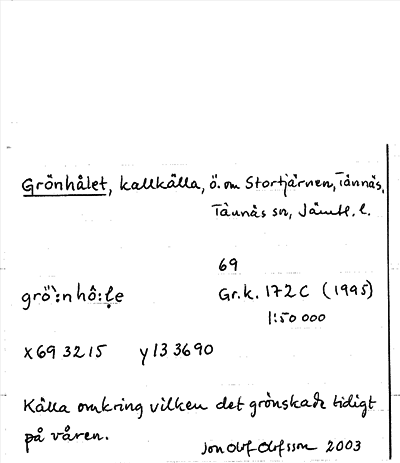 Grönhålet, kallkälla, ö. om Stortjärnen, Tännäs,
Tännäs sn, Jämtl. l.
69
grö̀:nhô:ḷe Gr.k. 172C (1995)
1:50 000
x 69 32 15 y 13 36 90
Källa omkring vilken det grönskade tidigt
på våren.
Jon Olof Olofsson 2003